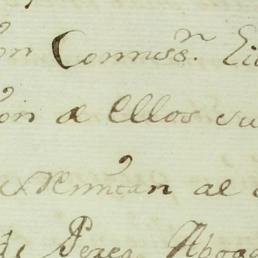 on Commiss.n
on a ellos su
Remitan al
de Perez Abog